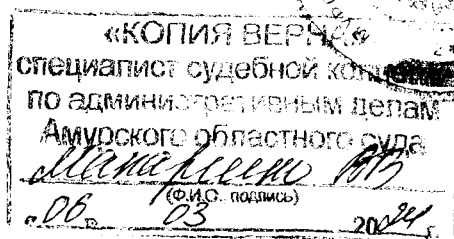 «КОПИЯ ВЕРНА»
специалист судебной коллегии
по административным делам
Амурского областного суда
(Ф.И.О., подпись)
"06" 03 2024 г.